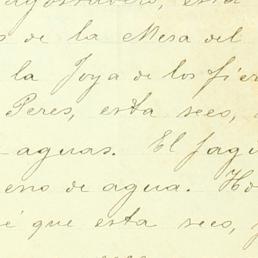 agostadero, esta
s de la Mesa del
la Joya de los fier
Peres, esta seco,
aguas. El jagu
eno de agua. Ho
é que esta seco,